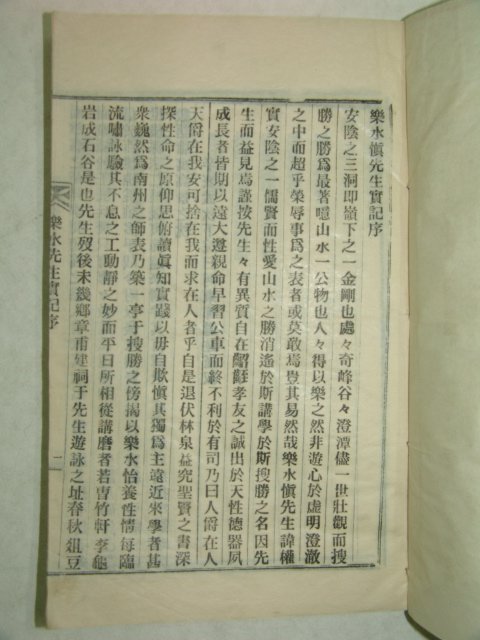 樂水愼先生實記序
安陰之三洞即嶺下之一金剛也處々奇峰谷々澄潭儘一世壯觀而搜
勝之勝爲最著噫山水一公物也人々得以樂之然非遊心於虛明澄澈
之中而超乎榮辱事爲之表者或莫敢焉豈其易然哉樂水愼先生諱權
實安陰之一儒賢而性愛山水之勝消遙於斯講學於斯搜勝之名因先
生而益見焉謹按先生々有異質自在齠齡孝友之誠出於天性德器夙
成長者皆期以遠大遵親命早習公車而終不利於有司乃曰人爵在人
天爵在我安可捨在我而求在人者乎自是退伏林泉益究聖賢之書深
探性命之原仰思俯讀眞知實踐以毋自欺愼其獨爲主遠近來學者甚
衆巍然爲南州之師表乃築一亭于搜勝之傍揭以樂水怡養性情每臨
流嘯詠驗其不息之工動靜之妙而平日所相從講磨者若曺竹軒李龜
岩成石谷是也先生歿後未幾鄕章甫建祠于先生遊詠之址春秋俎豆
樂水先生實記序
一